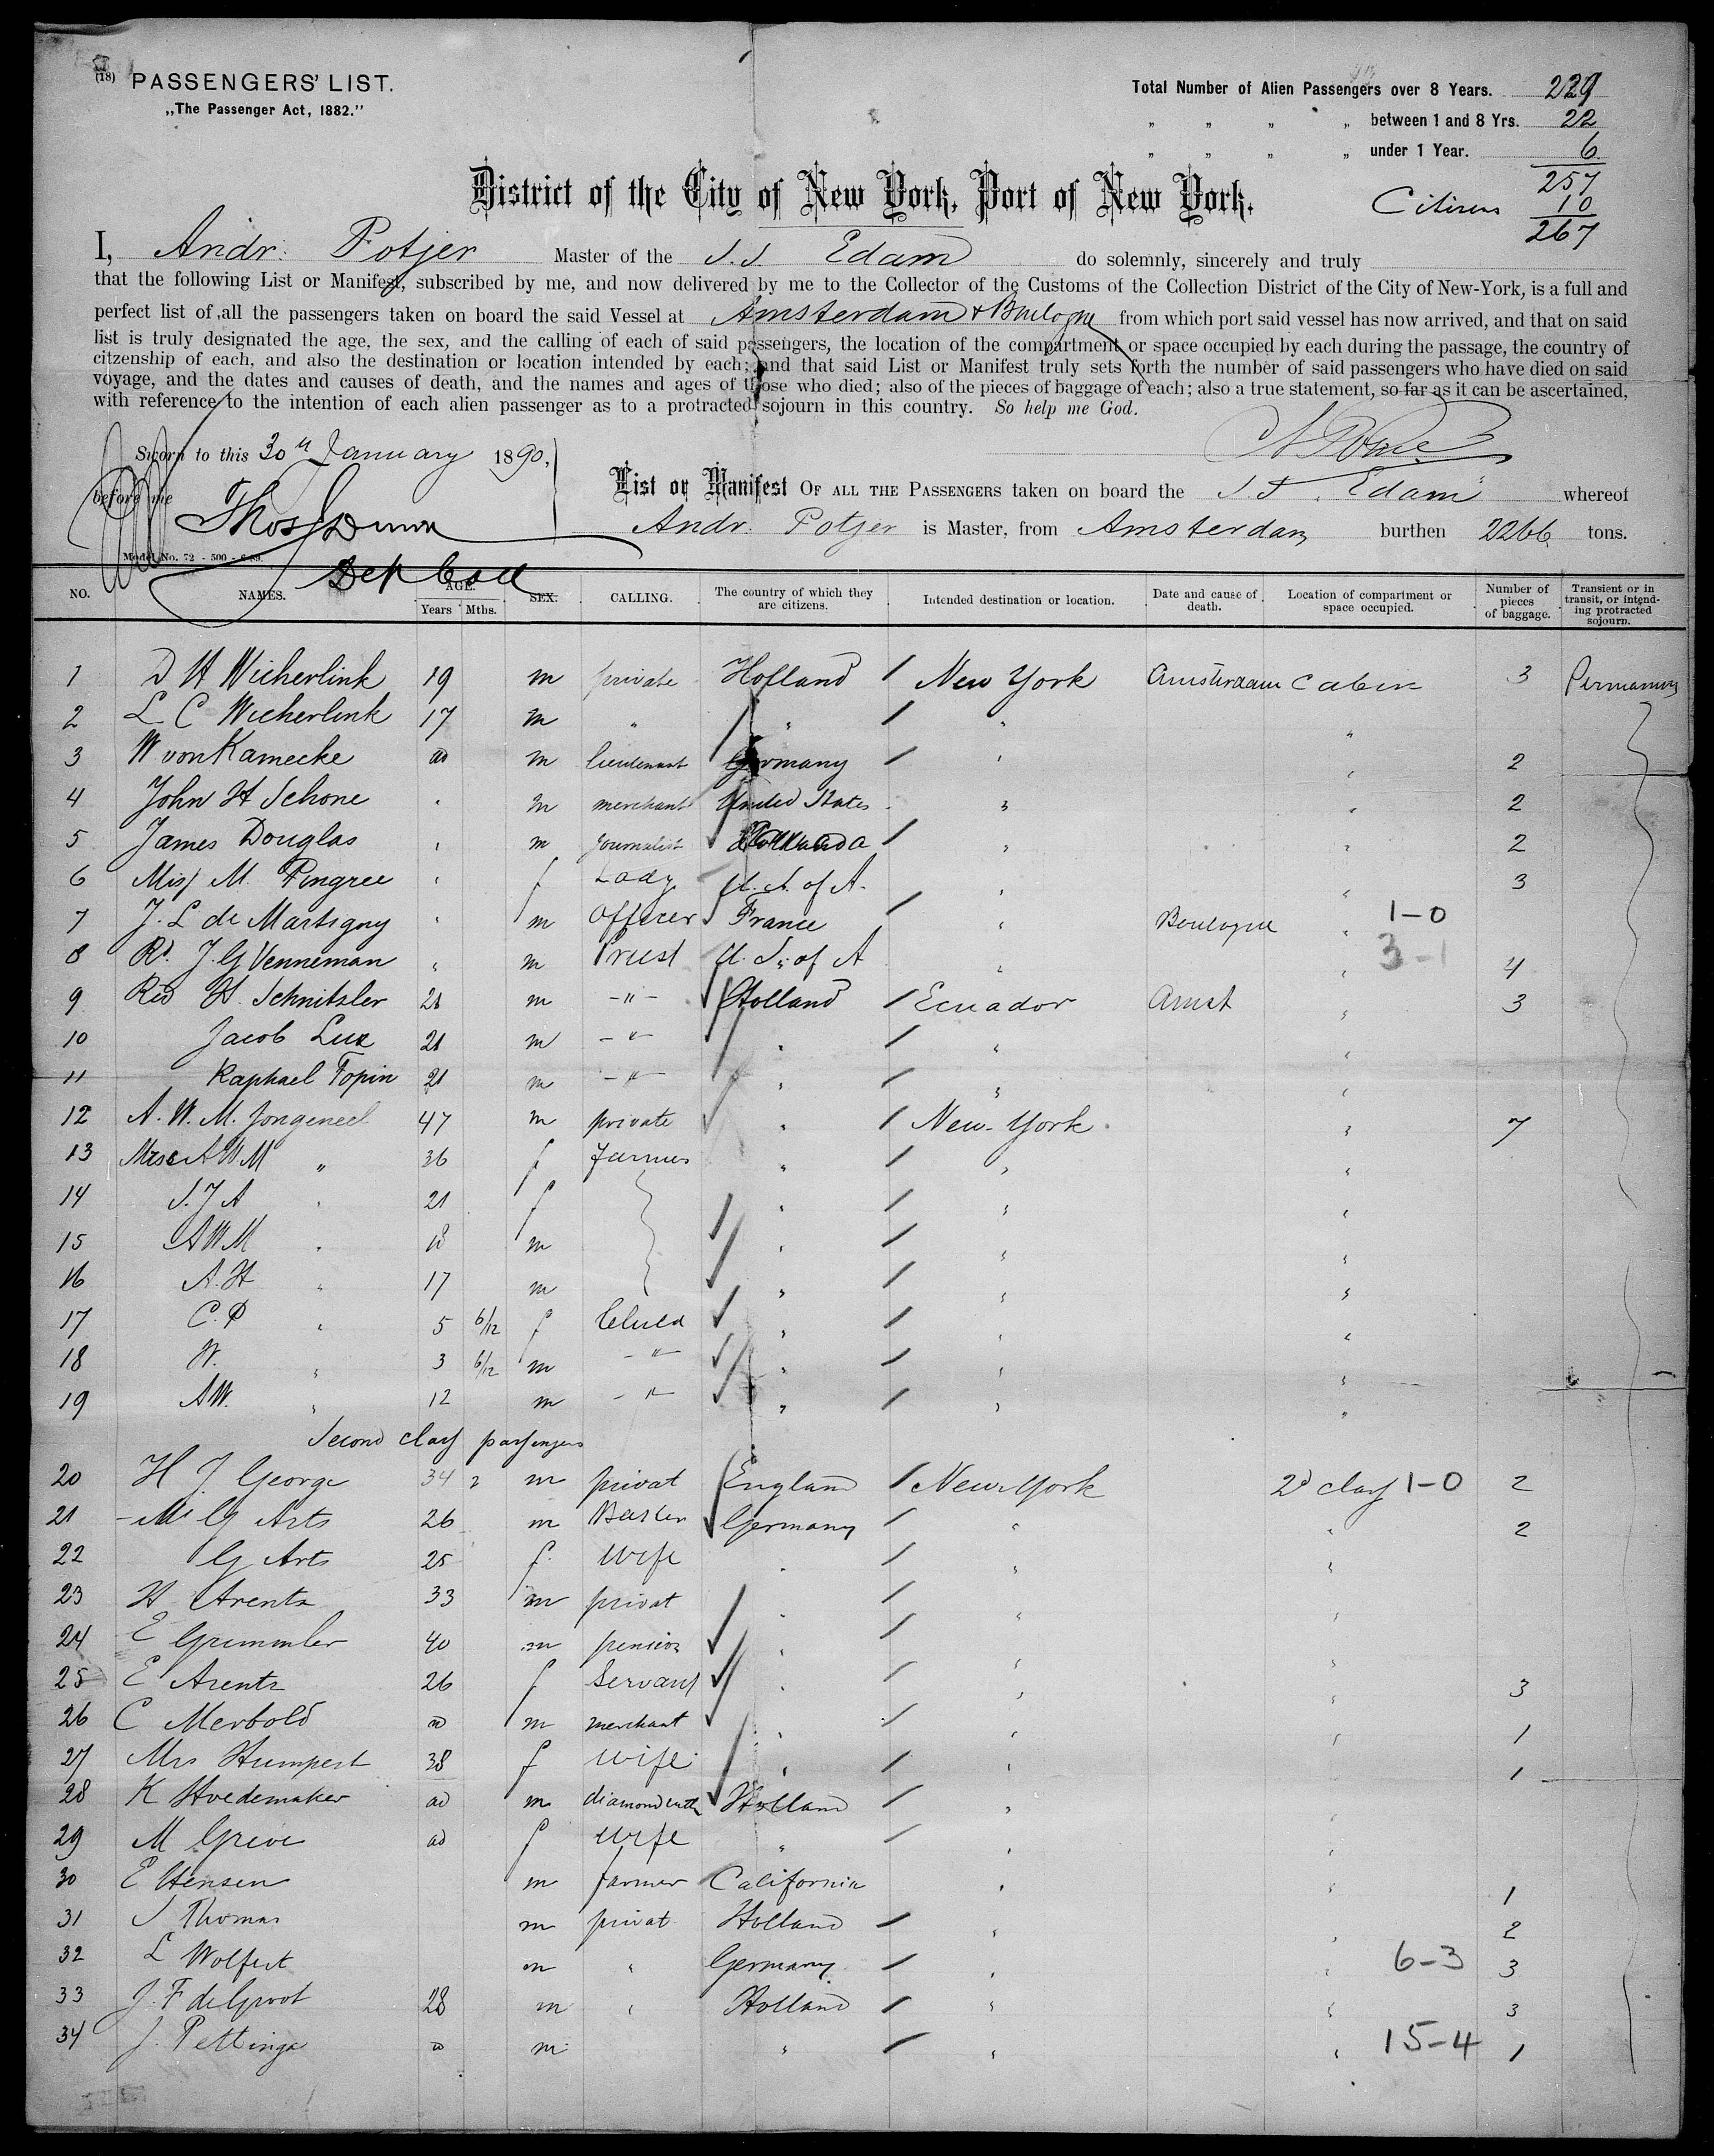 (18) PASSENGERS' LIST.
„The Passenger Act, 1882."
Total Number of Alien Passengers over 8 Years. 229
„ „ „ „ between 1 and 8 Yrs. 22
„ „ „ „ under 1 Year. 6
257
Citizens 10
267
District of the City of New York, Port of New York.
I, Andr. Potjer Master of the S.S. Edam do solemnly, sincerely and truly
that the following List or Manifest, subscribed by me, and now delivered by me to the Collector of the Customs of the Collection District of the City of New-York, is a full and
perfect list of all the passengers taken on board the said Vessel at Amsterdam & Boulogne from which port said vessel has now arrived, and that on said
list is truly designated the age, the sex, and the calling of each of said passengers, the location of the compartment or space occupied by each during the passage, the country of
citzenship of each, and also the destination or location intended by each; and that said List or Manifest truly sets forth the number of said passengers who have died on said
voyage, and the dates and causes of death, and the names and ages of those who died; also of the pieces of baggage of each; also a true statement, so far as it can be ascertained,
with reference to the intention of each alien passenger as to a protracted sojourn in this country. So help me God.
Sworn to this 30th January 1890,
before me Thos Dunn
Dep Coll
Model No. 72 - 500 - 6.89.
List or Manifest OF ALL THE PASSENGERS taken on board the S.S. Edam whereof
Andr. Potjer is Master, from Amsterdam burthen 2266 tons.
NO. NAMES. AGE. Years Mths. SEX. CALLING. The country of which they are citizens. Intended destination or location. Date and cause of death. Location of compartment or space occupied. Number of pieces of baggage. Transient or in transit, or intending protracted sojourn.
1 D H Wicherlink 19 m private Holland / New York Amsterdam Cabin 3
2 L C Wicherlink 17 m " " / " "
3 W von Kamecke ad m lieutenant Germany / " " 2
4 John H Schone " m merchant United States " " 2
5 James Douglas " m journalist / " " 2
6 Miss M. Pingree " f Lady U. S. of A. " " 3
7 J. L de Martigny " m Officer France / " Boulogne " 1-0
8 Rd. J. G Venneman " m Priest U. S. of A " " 3-1 4
9 Rev H. Schnitzler 21 m -"- Holland / Ecuador Amst " 3
10 Jacob Lux 21 m -"- " / " "
11 Raphael Topin 21 m -"- " / " "
12 A. W. M. Jongeneel 47 m private " / New-York " 7
13 Mrs A W M " 36 f " / " "
14 S. J A " 21 f " / " "
15 A W M " 18 m " / " "
16 A. H " 17 m " / " "
17 C. P " 5 6/12 f Child " / " "
18 W. " 3 6/12 m -"- " / " "
19 AW. " 12 m -"- " / " "
Second class passengers
20 H J George 34 m privat England / New-York 2d class 1-0 2
21 G Arts 26 m Germany / " " 2
22 G Arts 25 f wife " / " "
23 H Arentz 33 m privat " / " "
24 E Grimmler 40 m " / " "
25 E Arentz 26 f Servant " / " " 3
26 C Merbold ad m merchant " / " " 1
27 Mrs Humpert 38 f wife " / " 1
28 K Hoedemaker ad m Holland / " "
29 M Greve ad f wife " / " "
30 E Hensen m farmer California " " 1
31 J Thomas m privat Holland / " " 2
32 L Wolfert m " Germany / " " 6-3 3
33 J. F de Groot 28 m " Holland / " " 3
34 J. Pettinga ad m " / " " 15-4 1